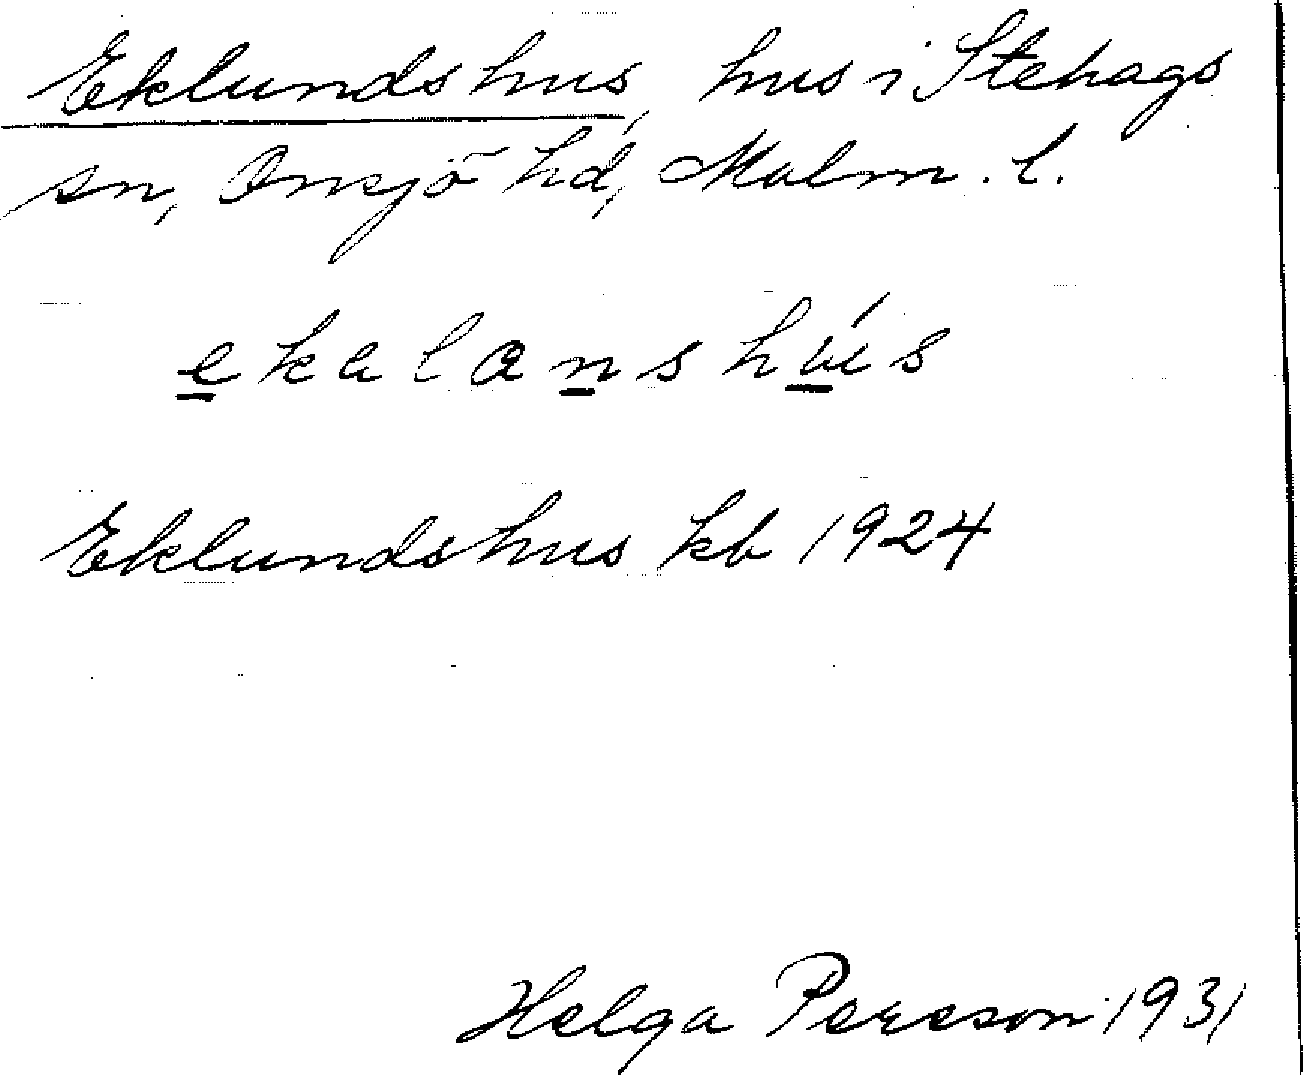 Eklundshus, hus i Stehags
sn, Onsjö hd, Malm. l.
ekalanshús
Eklundshus kb 1924
Helga Persson 1931